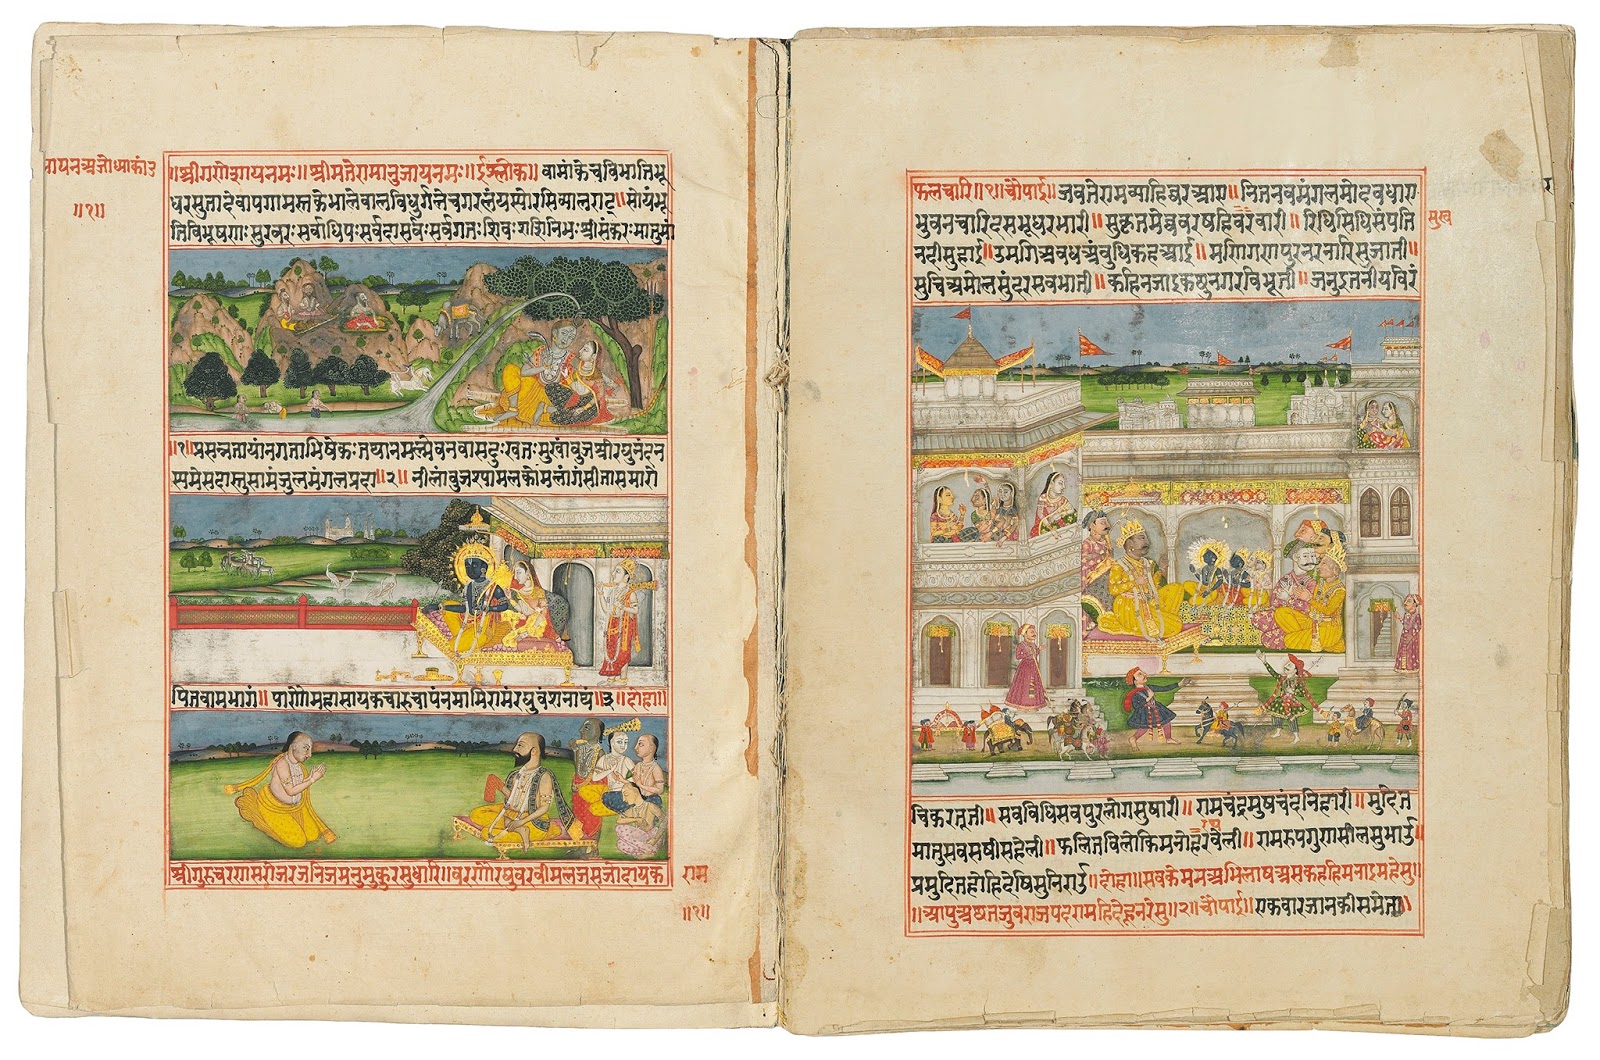 ायनअजोध्याकां३
॥१॥
॥श्रीगणेशायनमः॥श्रीमतेरामानुजायनमः॥ईश्लोक॥वामांकेचविभातिभू
धरसुतादेवापगामस्तकेभालेवालविधुर्गलेचगरलंयस्योरसिव्यालराट्॥सोयंभू
तिविभूषणःसुरवरःसर्वाधिपःसर्वदासर्वःसर्वगतःशिवःशशिनिभःश्रीसंकरःमातुमां
॥१॥प्रसन्नतायांनगताभिषेकःतथानमम्लेवनवासदुःखतःमुखांवुजश्रीरघुनंदन
स्यमेसदास्तुसामंजुलमंगलप्रदा॥२॥नीलांवुजश्यामलकोमलांगंसीतासमारो
पितवामभागं॥पाणौमहासायकचारुचापंनमामिरामंरघुवंशनाथं॥३॥दोहा॥
श्रीगुरुचरणसरोजरजनिजमनुमुकुरसुधारि॥वरणोरघुवरवीमलजसजोदायक
राम
॥१॥
फलचारि॥१॥चौपाई॥जवतेरामव्याहिघरआए॥नितनवमंगलमोदवधाए
भुवनचारिदसभूधरभारी॥सुकृतमेघवरषहिवरवारी॥रिधिसिधिसंपति
सुख
नदीसुहाई॥उमगिअवधअंवुधिकहआई॥मणिगणपुरनरनारिसुजाती॥
सुचिअमोलसुंदरसवभाती॥कहिनजाइकछुनगरविभूती॥जनुइतनीयविरं
चिकरतूती॥सवविधिसवपुरलोगसुषारी॥रामचंद्रमुषचंदनिहारी॥मुदित
मातुसवसषीसहेली॥फलितविलोकिमनोरथवेली॥रामरुपगुणसीलसुभाउ॥
प्रमुदितहोहिदेषिसुनिराउ॥दोहा॥सवकेमनअभिलाषअसकहहिमनाइमहेसु॥
॥आपुअछतजुवराजपदरामहिदेहूनरेसु॥२॥चौपाई॥एकवारजानकीसमेता॥